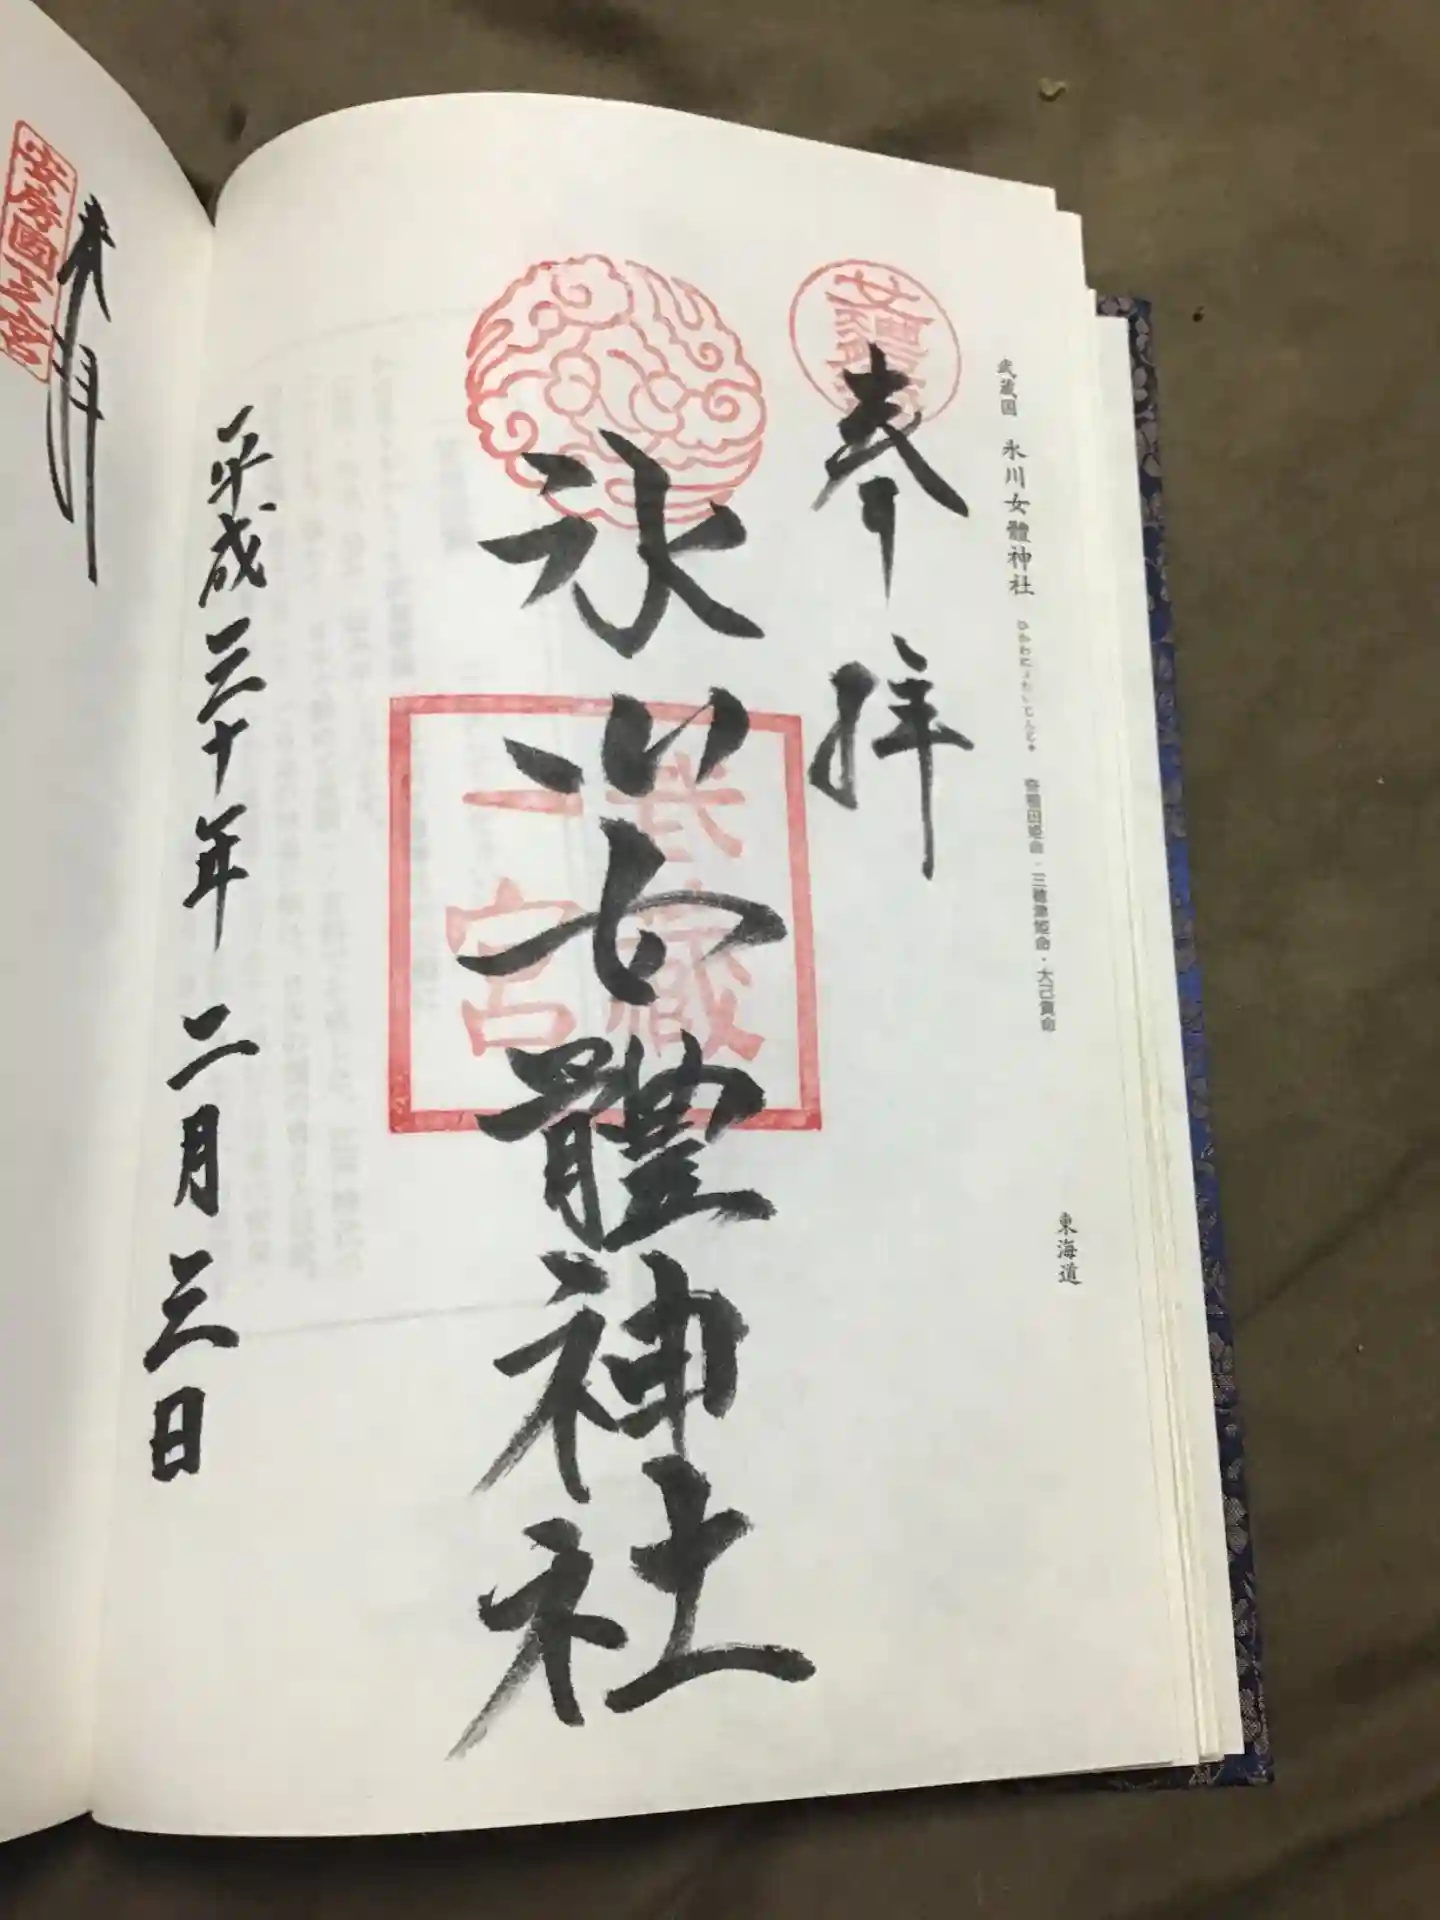 武蔵国 氷川女體神社 ひかわにょたいじんじゃ 奇稲田姫命・三穂津姫命・大己貴命 東海道
奉拝
氷川女體神社
武蔵
一宮
平成三十年 二月 三日